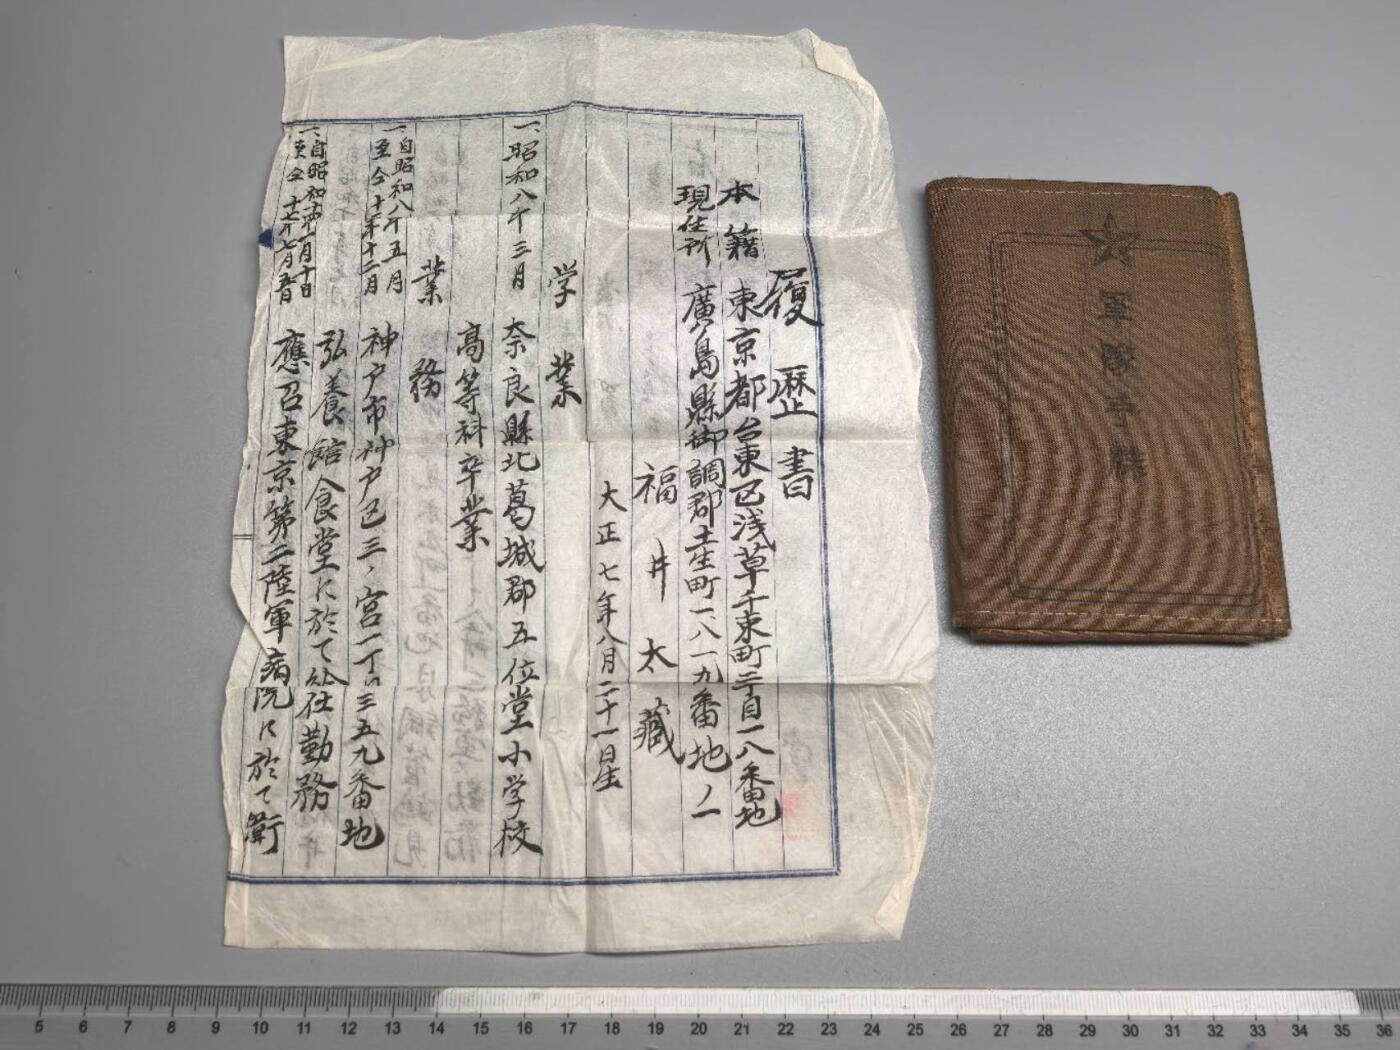 履歴書
本籍 東京都台東区浅草千束町二丁目一八番地
現住所 廣島縣御調郡土生町一八一九番地ノ一
福井太藏
大正七年八月二十一日生
学業
一、昭和八年三月 奈良縣北葛城郡五位堂小学校
高等科卒業
業務
一、自昭和八年五月
至仝十年十二月
神戸市神戸区三ノ宮一丁目三五九番地
弘養館食堂に於て給仕勤務
一、自昭和十
至仝十七年七月
應召東京第二陸軍病院に於て衛
軍隊手牒
5 6 7 8 9 10 11 12 13 14 15 16 17 18 19 20 21 22 23 24 25 26 27 28 29 30 31 32 33 34 35 36